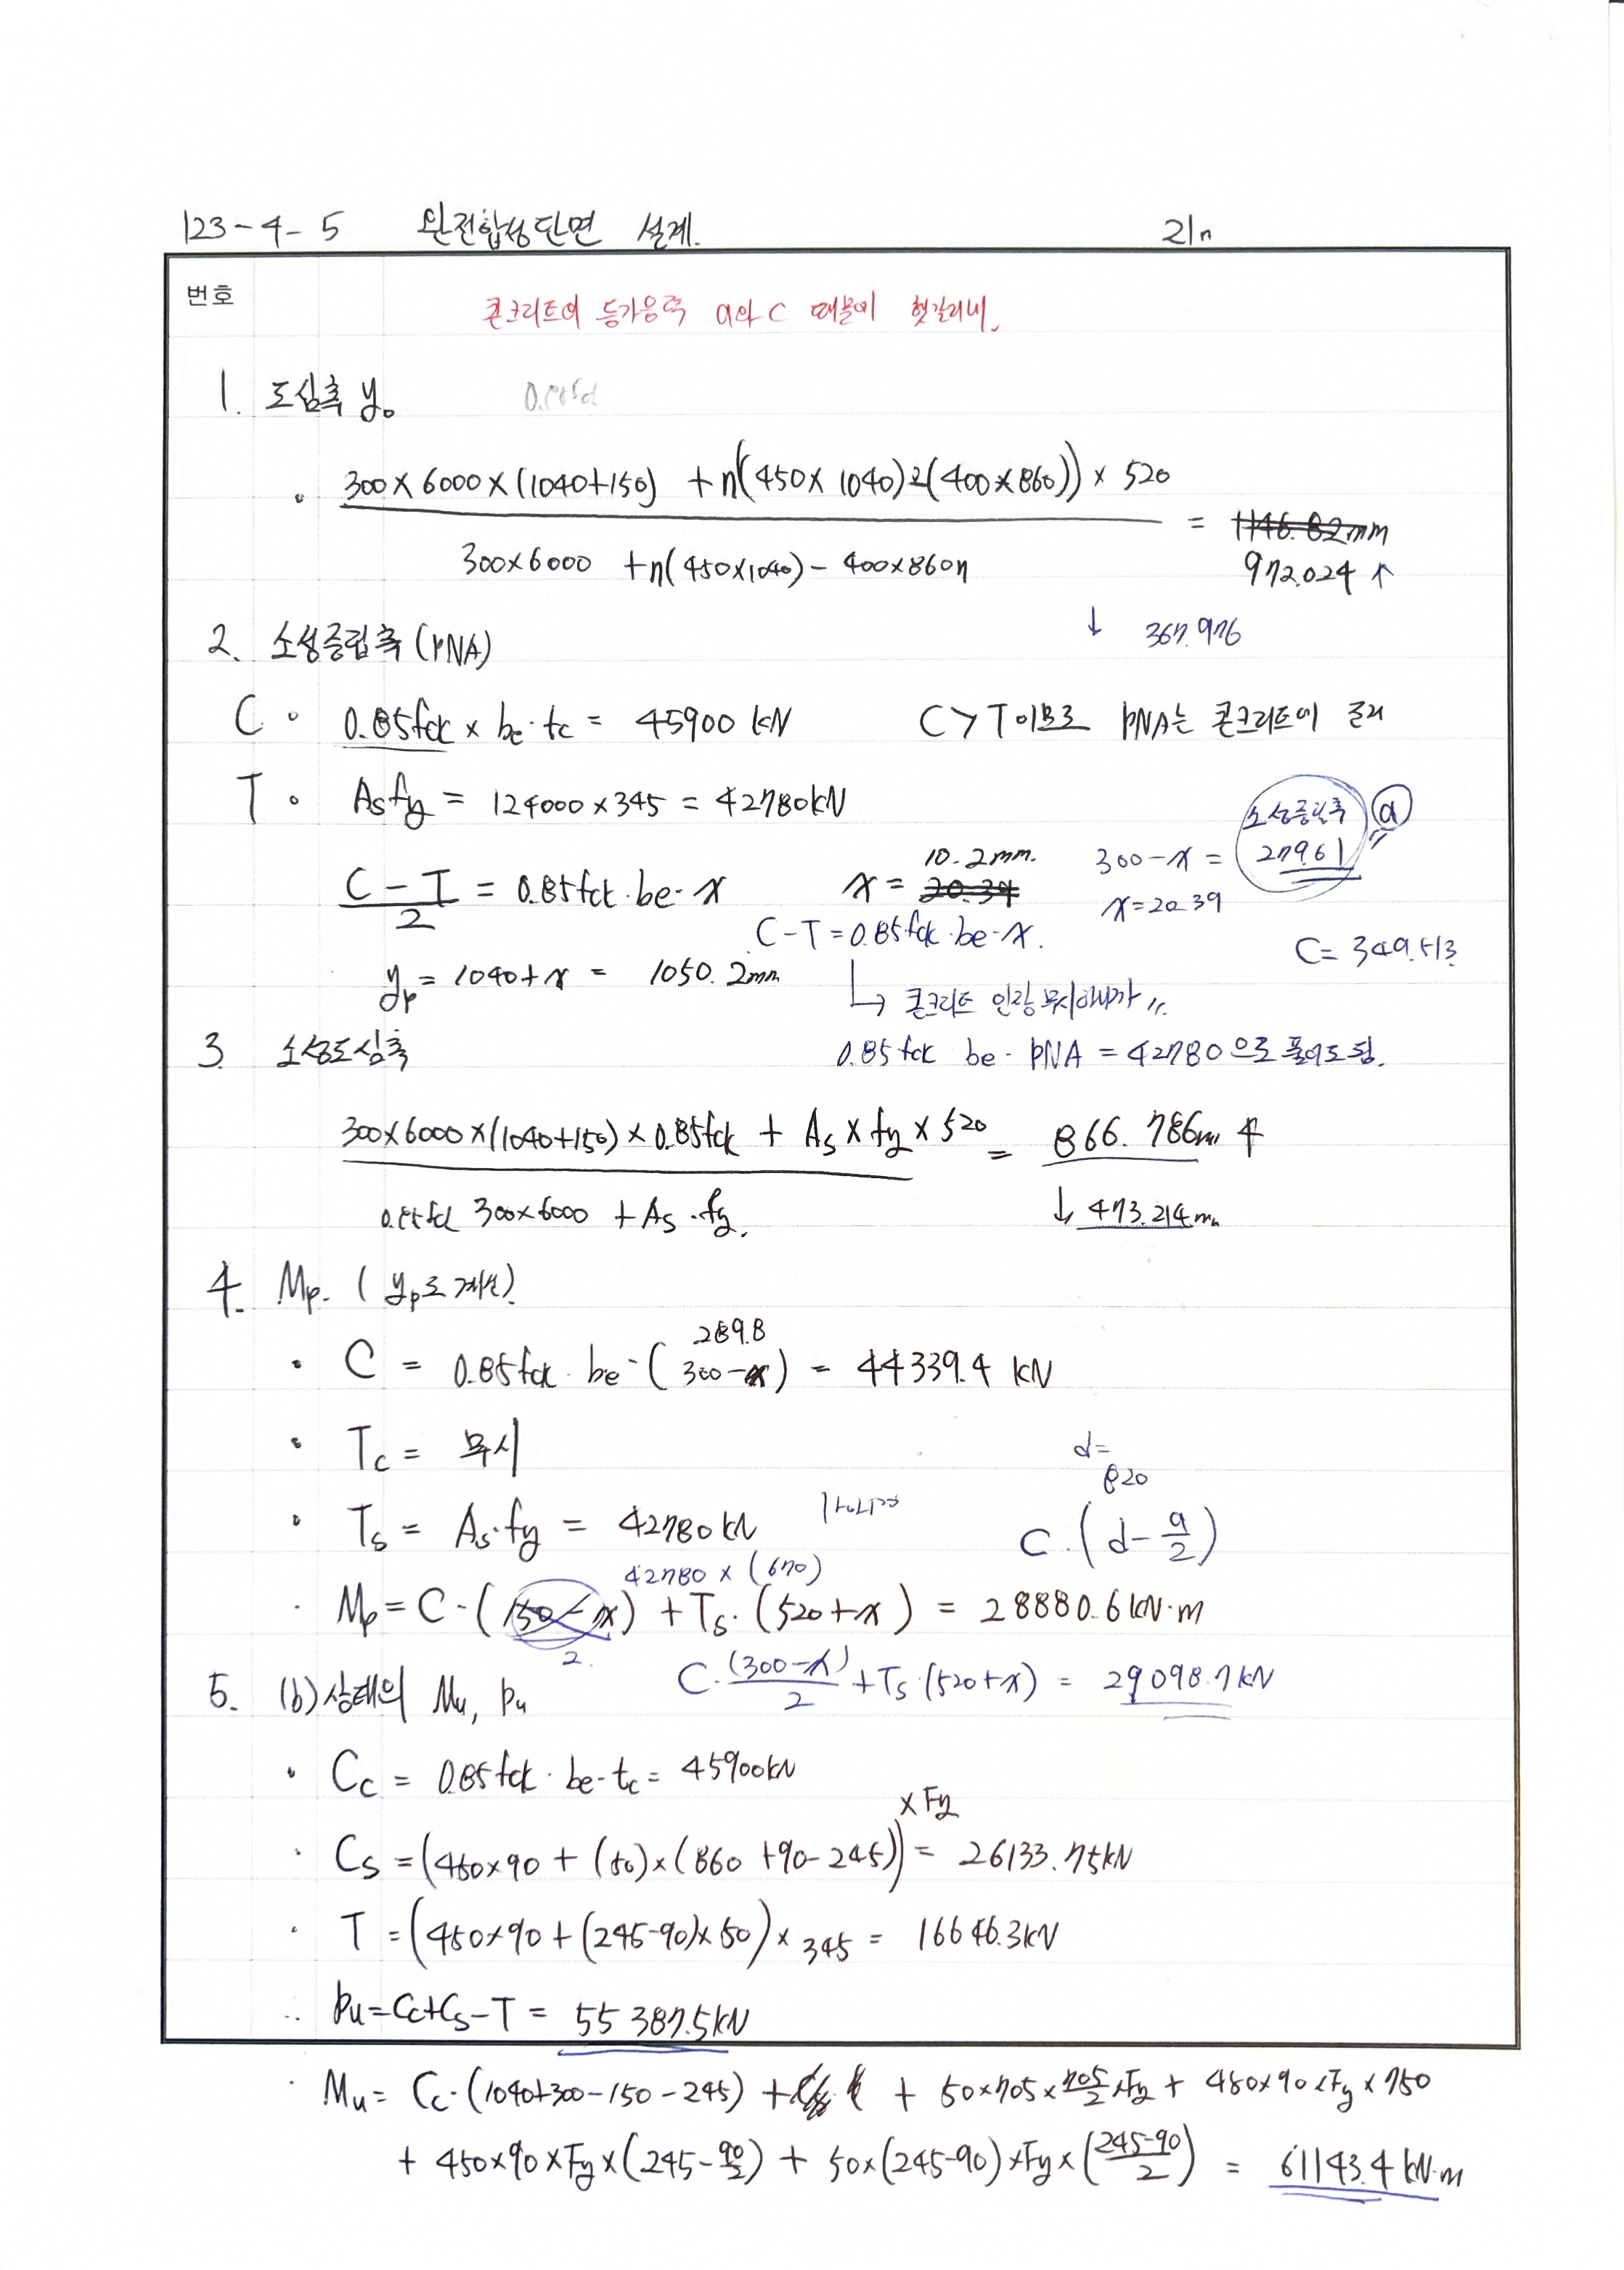 123-4-5 완전합성단면 설계. 21n
번호
콘크리트의 등가응력 a와 C 때문에 헷갈리네.
1. 도심축 y₀ 0.85fck
300×6000×(1040+150) + n(450×1040)-(400×860))×520
300×6000 + n(450×1040) - 400×860n
= 1146.82mm
972.024 ↑
↓ 367.976
2. 소성중립축 (PNA)
C 0.85fck × be·tc = 45900 kN C>T이므로 PNA는 콘크리트에 존재
T Asfy = 124000×345 = 42780kN
소성중립축 ⓐ
300-x = 279.61
x=20.39
C-T/2 = 0.85fck·be·x x = 20.39 10.2mm.
C-T=0.85fck·be·x. C= 349.513
yp = 1040+x = 1050.2mm
↳ 콘크리트 인장 무시하니까
3. 소성도심축 0.85fck be·PNA = 42780으로 풀어도 됨.
300×6000×(1040+150)×0.85fck + As×fy×520 = 866.786mm ↑
0.85fck 300×6000 + As·fy. ↓ 473.214mm
4. Mp. (yp로 계산)
289.8
C = 0.85fck·be·(300-x) = 44339.4 kN
Tc = 무시
d= 820
Ts = As·fy = 42780kN C·(d-a/2)
42780×(670)
Mp = C·(150-x) + Ts·(520+x) = 28880.6kN·m
2.
C·(300-x)/2 + Ts·(520+x) = 29098.7kN
5. (b)상태의 Mu, Pu
Cc = 0.85fck·be·tc = 45900kN
×Fy
Cs = (450×90 + (50)×(860+90-245)) = 26133.75kN
T = (450×90 + (245-90)×50)×345 = 16646.3kN
∴ Pu=Cc+Cs-T = 55387.5kN
Mu = Cc·(1040+300-150-245) + 50×705×705/2×Fy + 450×90×Fy×750
+ 450×90×Fy×(245-90/2) + 50×(245-90)×Fy×(245-90/2) = 61143.4kN·m